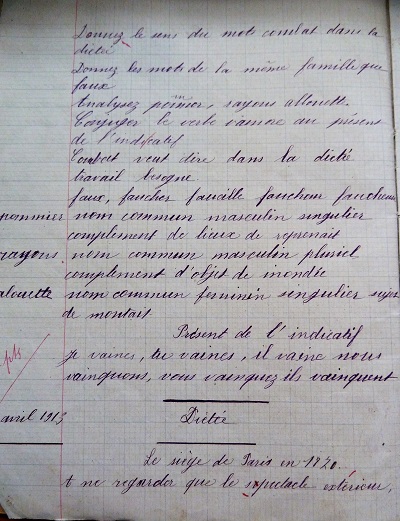 Donnez le sens du mots combat dans la
dictée
Donnez les mots de la même famille que
faux
Analysez pommier, rayons allouette.
Conjuger le verbe vaincre au présent
de l'indicatif
Combat veut dire dans la dictée
travail besogne
faux, faucher faucille faucheur faucheuse
pommier nom commun masculin singulier
complement de lieux de reprenait
rayons nom commun masculin pluriel
complement d'objet de inondée
alouette nom commun feminin singulier sujet
de montait
Présent de l'indicatif
je vaincs, tu vaincs, il vainc nous
vainquons, vous vainquez ils vainquent
pts
avril 1913 Dictée
Le siège de Paris en 1870.
A ne regarder que le spectacle extérieur,